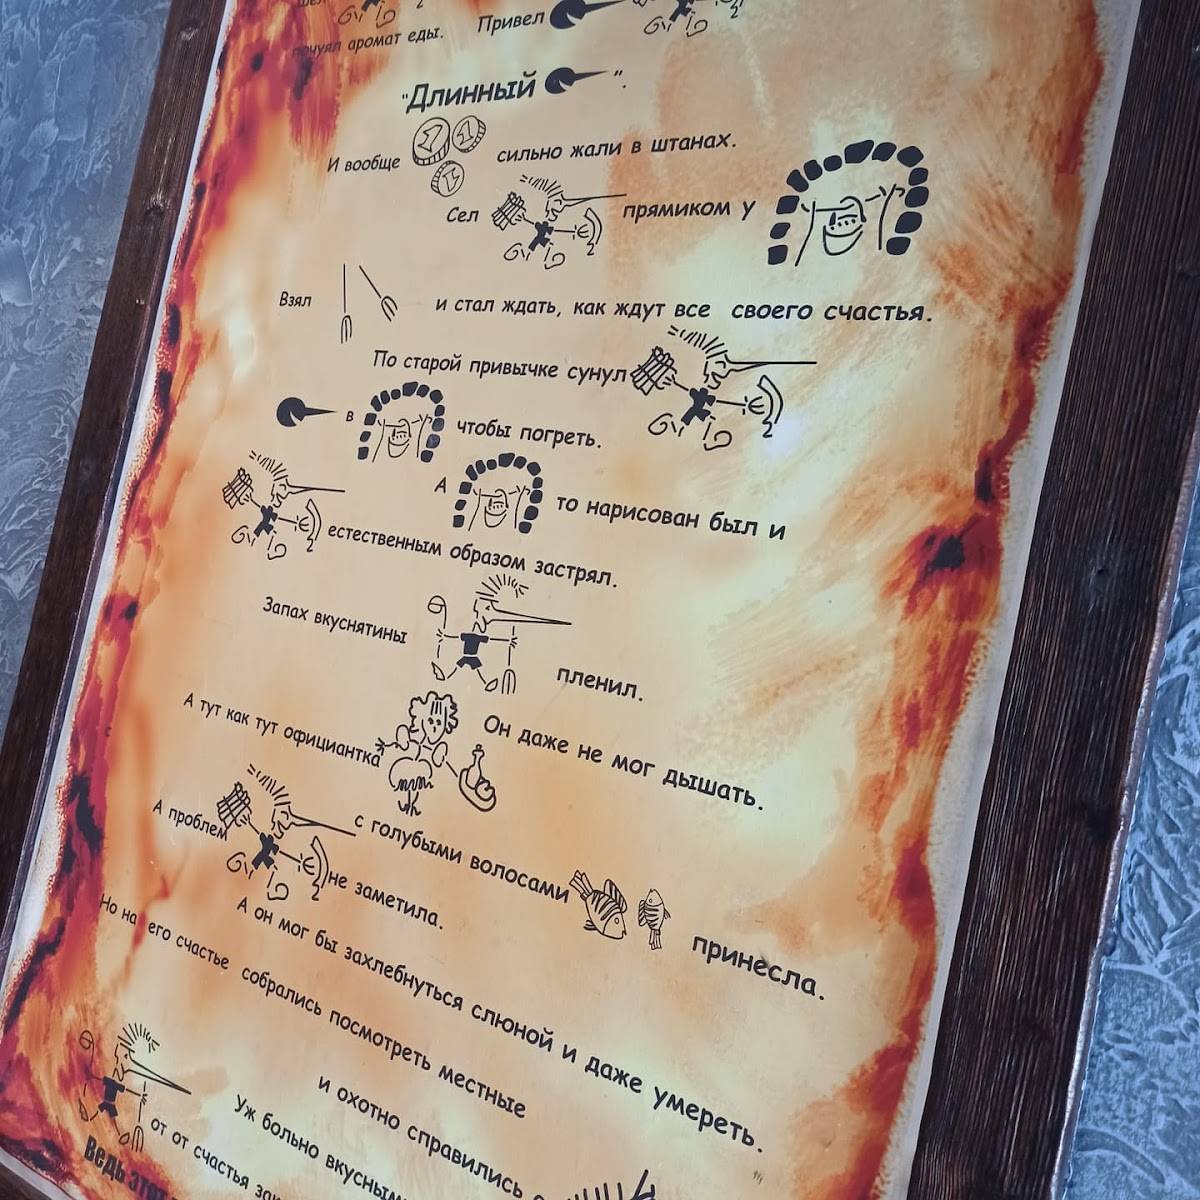 почуял аромат еды. Привел
"Длинный ".
И вообще сильно жали в штанах.
Сел прямиком у
Взял и стал ждать, как ждут все своего счастья.
По старой привычке сунул
в чтобы погреть.
А то нарисован был и
естественным образом застрял.
Запах вкуснятины пленил.
Он даже не мог дышать.
А тут как тут официантка
с голубыми волосами принесла.
А проблем не заметила.
А он мог бы захлебнуться слюной и даже умереть.
Но на его счастье собрались посмотреть местные
и охотно справились с
Уж больно вкусным
от от счастья
Ведь этот